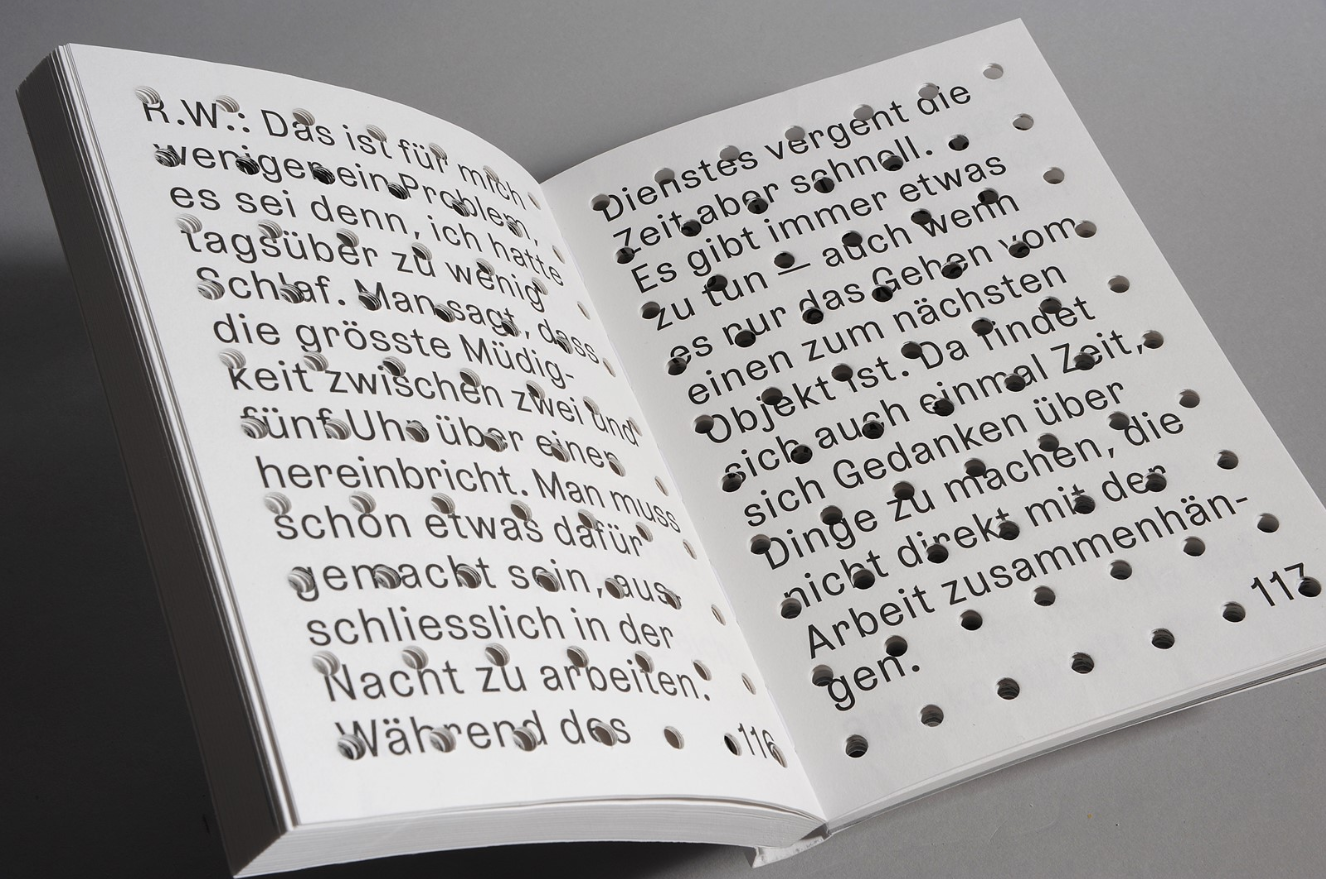 R.W.: Das ist für mich
weniger ein Problem,
es sei denn, ich hatte
tagsüber zu wenig
Schlaf. Man sagt, dass
die grösste Müdig-
keit zwischen zwei und
fünf Uhr über einen
hereinbricht. Man muss
schon etwas dafür
gemacht sein, aus-
schliesslich in der
Nacht zu arbeiten.
Während des
116
Dienstes vergent die
Zeit aber schnell.
Es gibt immer etwas
zu tun — auch wenn
es nur das Gehen vom
einen zum nächsten
Objekt ist. Da findet
sich auch einmal Zeit,
sich Gedanken über
Dinge zu machen, die
nicht direkt mit der
Arbeit zusammenhän-
gen.
117